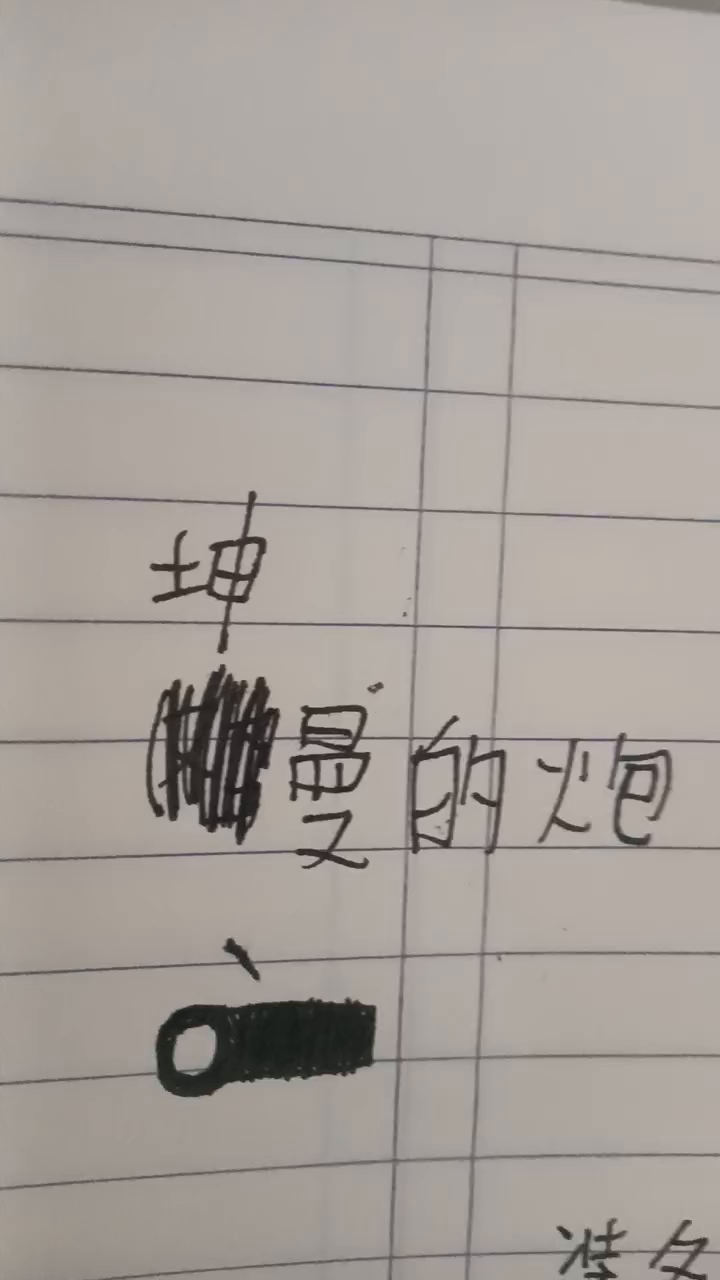 坤
曼的炮